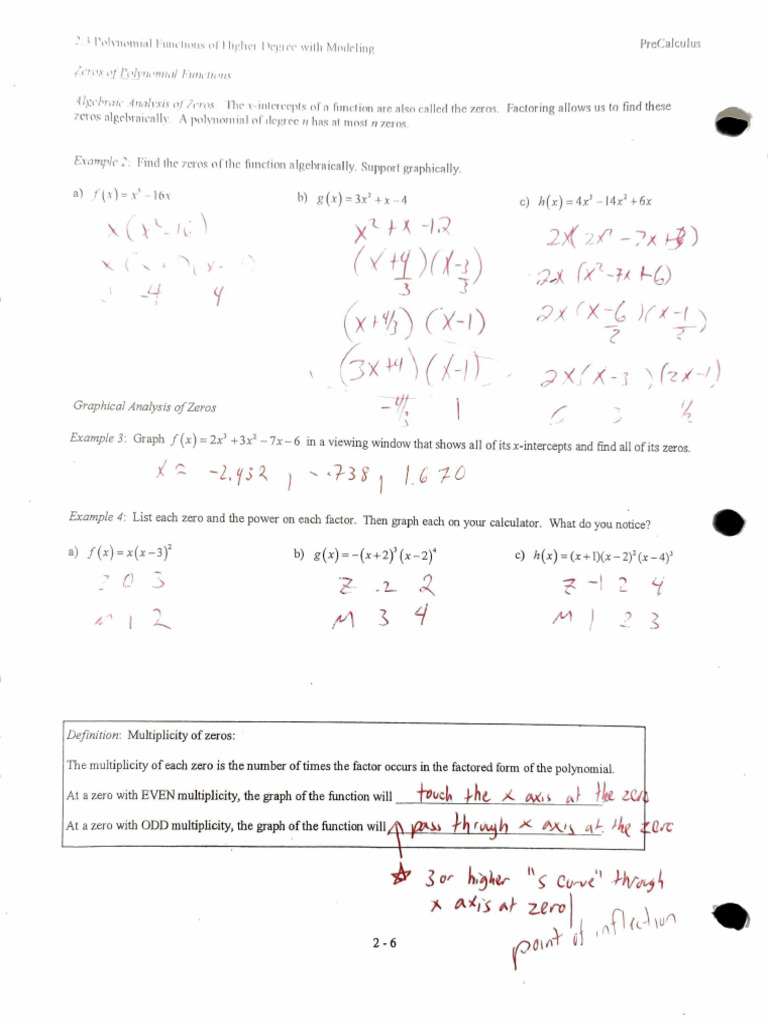 2.3 Polynomial Functions of Higher Degree with Modeling PreCalculus
Zeros of Polynomial Functions
Algebraic Analysis of Zeros: The x-intercepts of a function are also called the zeros. Factoring allows us to find these
zeros algebraically. A polynomial of degree n has at most n zeros.
Example 2: Find the zeros of the function algebraically. Support graphically.
a) f(x) = x³ – 16x b) g(x) = 3x² + x – 4 c) h(x) = 4x³ – 14x² + 6x
x(x²-16) x² + x -12 2x(2x² - 7x + 3)
(x+4/3)(x-3/3) 2x (x²-7x+6)
-4 4 (x+4/3) (x-1) 2x (x-6/2)(x-1/2)
(3x+4)(x-1) 2x(x-3)(2x-1)
-4/3 1 3 ½
Graphical Analysis of Zeros
Example 3: Graph f(x) = 2x³ + 3x² – 7x – 6 in a viewing window that shows all of its x-intercepts and find all of its zeros.
x = -2.432, -.738, 1.670
Example 4: List each zero and the power on each factor. Then graph each on your calculator. What do you notice?
a) f(x) = x(x–3)² b) g(x) = –(x+2)³(x–2)⁴ c) h(x) = (x+1)(x–2)²(x–4)³
Z 0 3 Z -2 2 Z -1 2 4
M 1 2 M 3 4 M 1 2 3
Definition: Multiplicity of zeros:
The multiplicity of each zero is the number of times the factor occurs in the factored form of the polynomial.
At a zero with EVEN multiplicity, the graph of the function will touch the x axis at the zero
At a zero with ODD multiplicity, the graph of the function will pass through x axis at the zero
3 or higher "s curve" through
x axis at zero
point of inflection
2 - 6